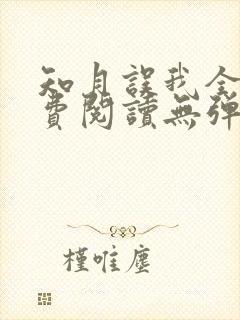 知月誤我全
費閱讀無彈
槿唯塵